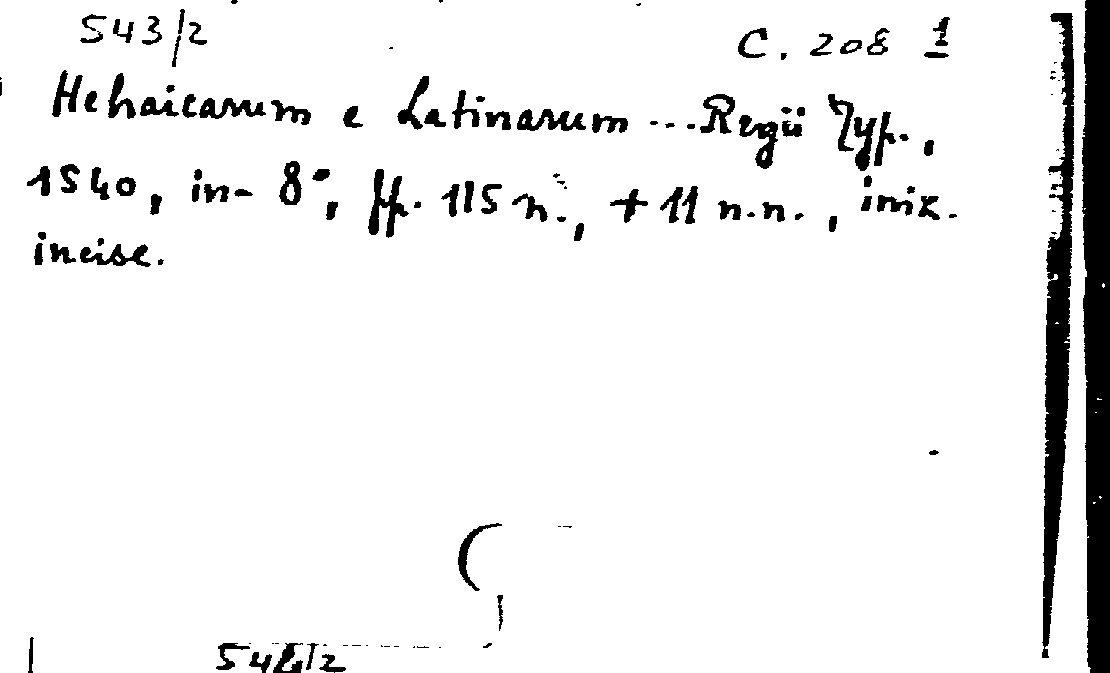 543/2 C. 208 1
Hehaicarum e Latinarum ... Regii Typ.,
1540, in-8°, ff. 115 n., + 11 n.n., iniz.
incise.